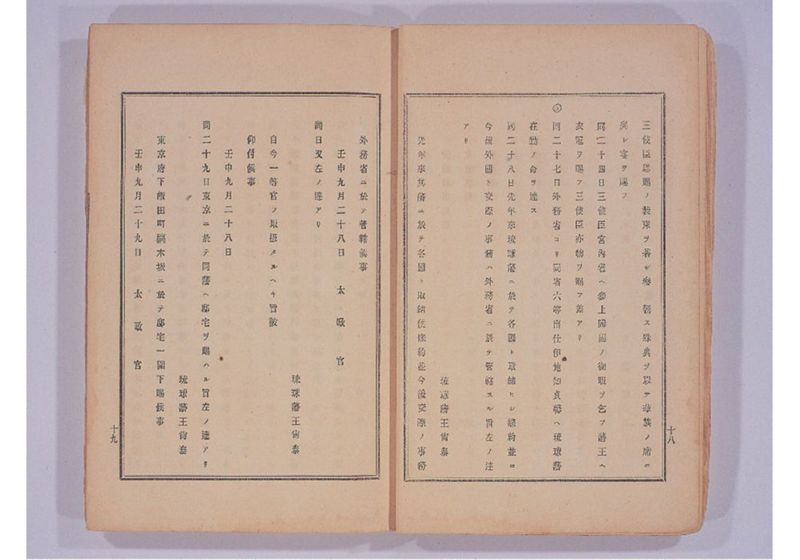 三使臣恩賜ノ装束ヲ着シ参 朝ス殊典ヲ以テ華族ノ席ニ
列シ宴ヲ賜フ
同二十四日三使臣宮内省ヘ参上帰国ノ御暇ヲ乞フ藩王ヘ
衣冠ヲ賜フ三使臣亦物ヲ賜フ差アリ
同二十七日外務省ヨリ同省六等出仕伊地知貞馨ヘ琉球藩
在勤ノ命ヲ達ス
同二十八日先年来琉球藩ニ於テ各国ト取結ヒシ條約並ニ
今後外国ト交際ノ事務ハ外務省ニ於テ管轄スル旨左ノ達
アリ
琉球藩王尚泰
先年来其藩ニ於テ各国ト取結候條約並今後交際ノ事務
十八
外務省ニ於テ管轄候事
壬申九月二十八日 太政官
同日又左ノ達アリ
琉球藩王尚泰
自今一等官ノ取扱タルヘキ旨被
仰付候事
壬申九月二十八日
同二十九日東京ニ於テ同藩ヘ邸宅ヲ賜ハル旨左ノ達アリ
琉球藩王尚泰
東京府下飯田町黐木坂ニ於テ邸宅一閣下賜候事
壬申九月二十九日 太政官
十九